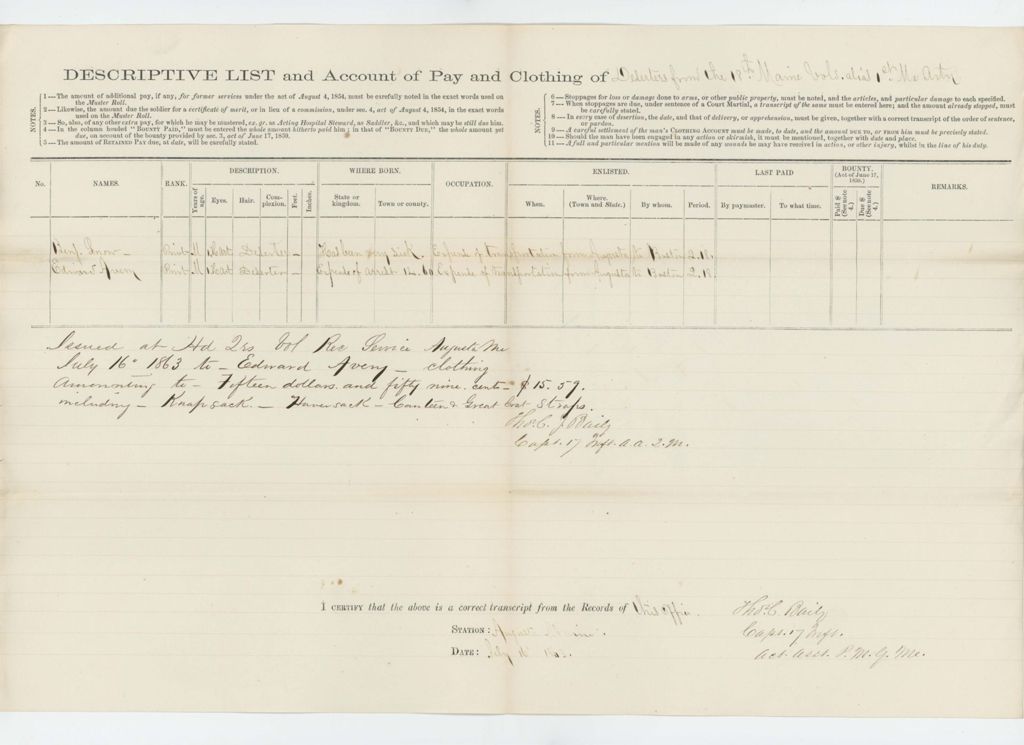 DESCRIPTIVE LIST and Account of Pay and Clothing of Deserters from the 18th Maine Vols. alias 1st Me Arty
NOTES.
1—The amount of additional pay, if any, for former services under the act of August 4, 1854, must be carefully noted in the exact words used on
the Muster Roll.
2—Likewise, the amount due the soldier for a certificate of merit, or in lieu of a commission, under sec. 4, act of August 4, 1854, in the exact words
used on the Muster Roll.
3—So, also, of any other extra pay, for which he may be mustered, ex. gr. as Acting Hospital Steward, as Saddler, &c., and which may be still due him.
4—In the column headed "BOUNTY PAID," must be entered the whole amount hitherto paid him; in that of "BOUNTY DUE," the whole amount yet
due, on account of the bounty provided by sec. 3, act of June 17, 1850.
5—The amount of RETAINED PAY due, at date, will be carefully stated.
NOTES.
6—Stoppages for loss or damage done to arms, or other public property, must be noted, and the articles, and particular damage to each specified.
7—When stoppages are due, under sentence of a Court Martial, a transcript of the same must be entered here; and the amount already stopped, must
be carefully stated.
8—In every case of desertion, the date, and that of delivery, or apprehension, must be given, together with a correct transcript of the order of sentence,
or pardon.
9—A careful settlement of the man's CLOTHING ACCOUNT must be made, to date, and the amount DUE TO, or FROM him must be precisely stated.
10—Should the man have been engaged in any action or skirmish, it must be mentioned, together with date and place.
11—A full and particular mention will be made of any wounds he may have received in action, or other injury, whilst in the line of his duty.
No. NAMES. RANK. DESCRIPTION. WHERE BORN. OCCUPATION. ENLISTED. LAST PAID BOUNTY. (Act of June 17, 1850.) REMARKS.
Years of age. Eyes. Hair. Complexion. Feet. Inches. State or kingdom. Town or county. When. Where. (Town and State.) By whom. Period. By paymaster. To what time. Paid $ (See note 4.) Due $ (See note 4.)
Benj. Snow – Privt. Deserter – Has been very sick. Expense of transportation from Augusta to Boston 2.18.
Edward Avery Privt. Deserter – Expense of arrest 12.60 Expense of transportation from Augusta to Boston 2.18
Issued at Hd Qrs Vol Rec Service Augusta Me
July 16" 1863 to – Edward Avery – clothing
amounting to – Fifteen dollars and fifty nine cents – $15.59.
including – Knapsack – Haversack – Canteen & Great Coat Straps.
Tho. C. J. Baily
Capt. 17 Inft. a. a. Q. M.
I CERTIFY that the above is a correct transcript from the Records of this Office.
STATION: Augusta Maine.
DATE: July 16 1863.
Tho. C. J. Baily
Capt. 17 Inft.
Act. Asst. P. M. G. Me.